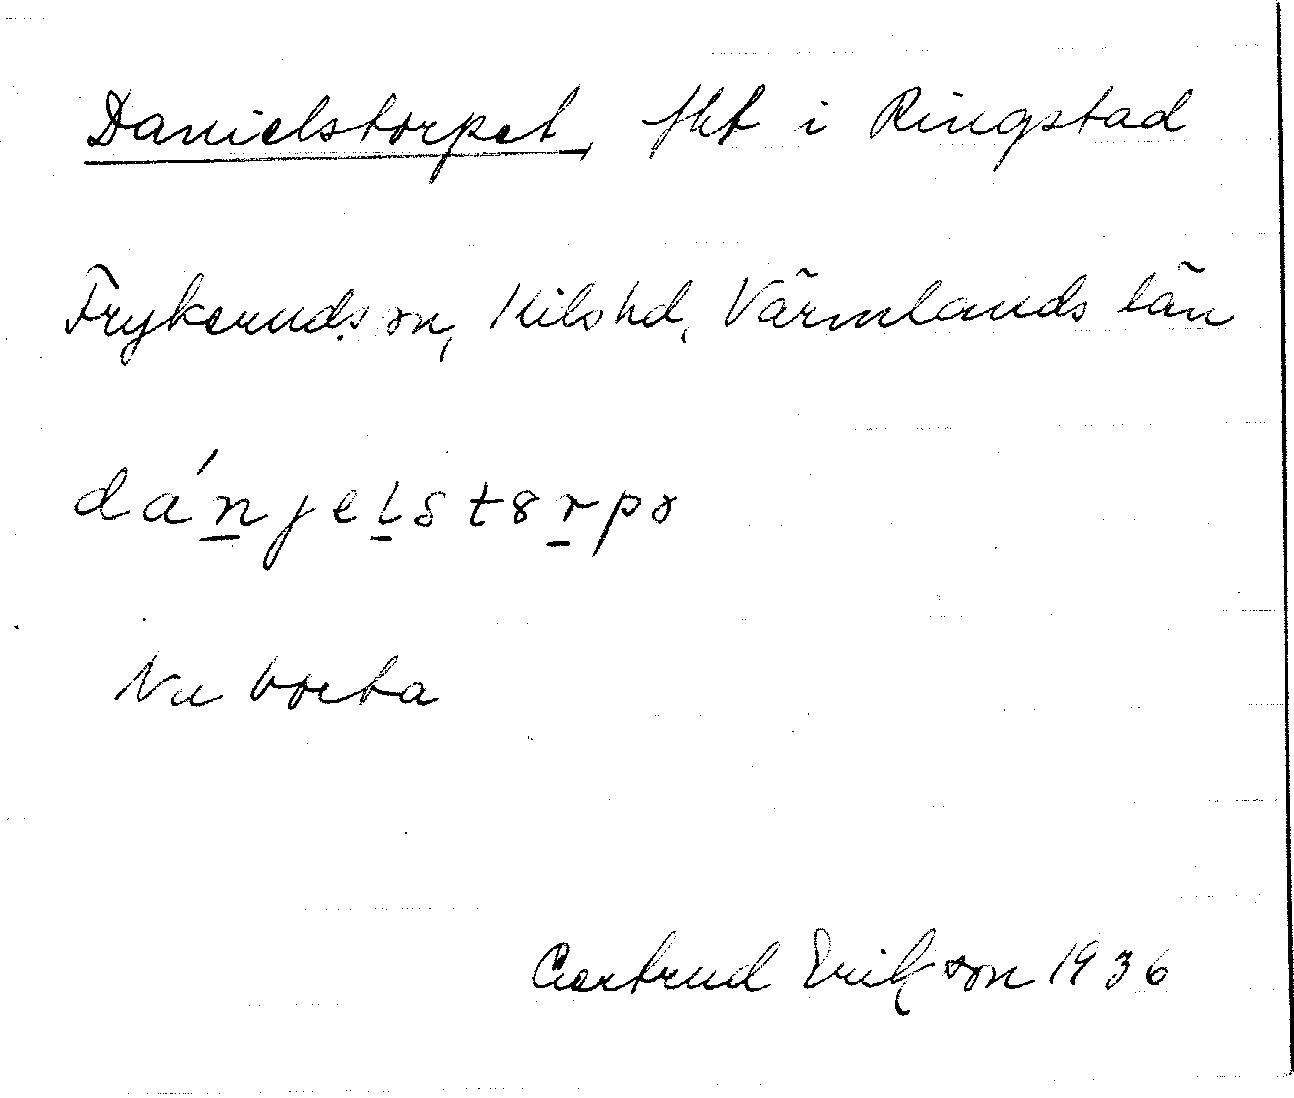 Danielstorpet, fht i Ringstad
Frykeruds sn, Kils hd, Värmlands län
dánjelstȣrpɤ
Nu borta
Gertrud Erikson 1936